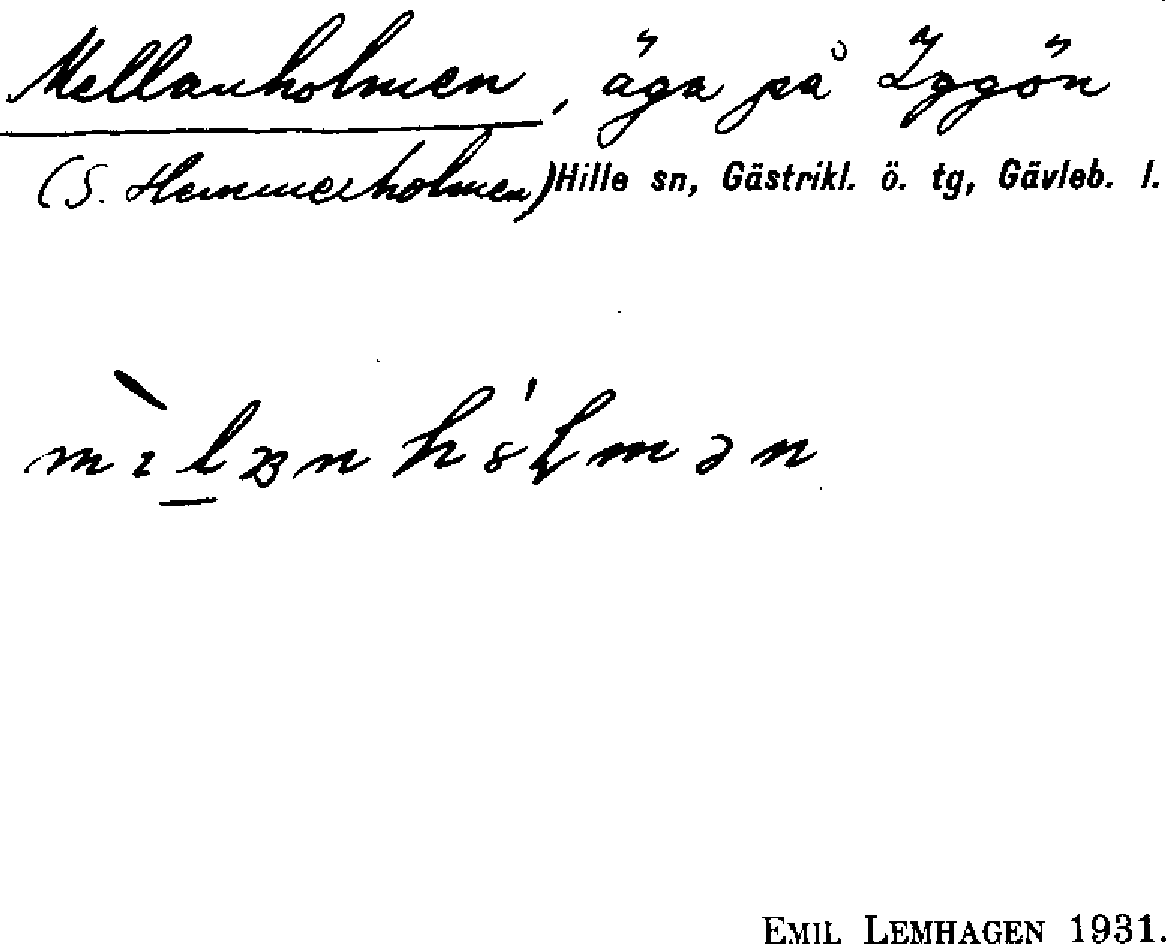 Mellanholmen, äga på Iggön
(S. Hemmerholmen) Hille sn, Gästrikl. ö. tg, Gävleb. l.
EMIL LEMHAGEN 1931.